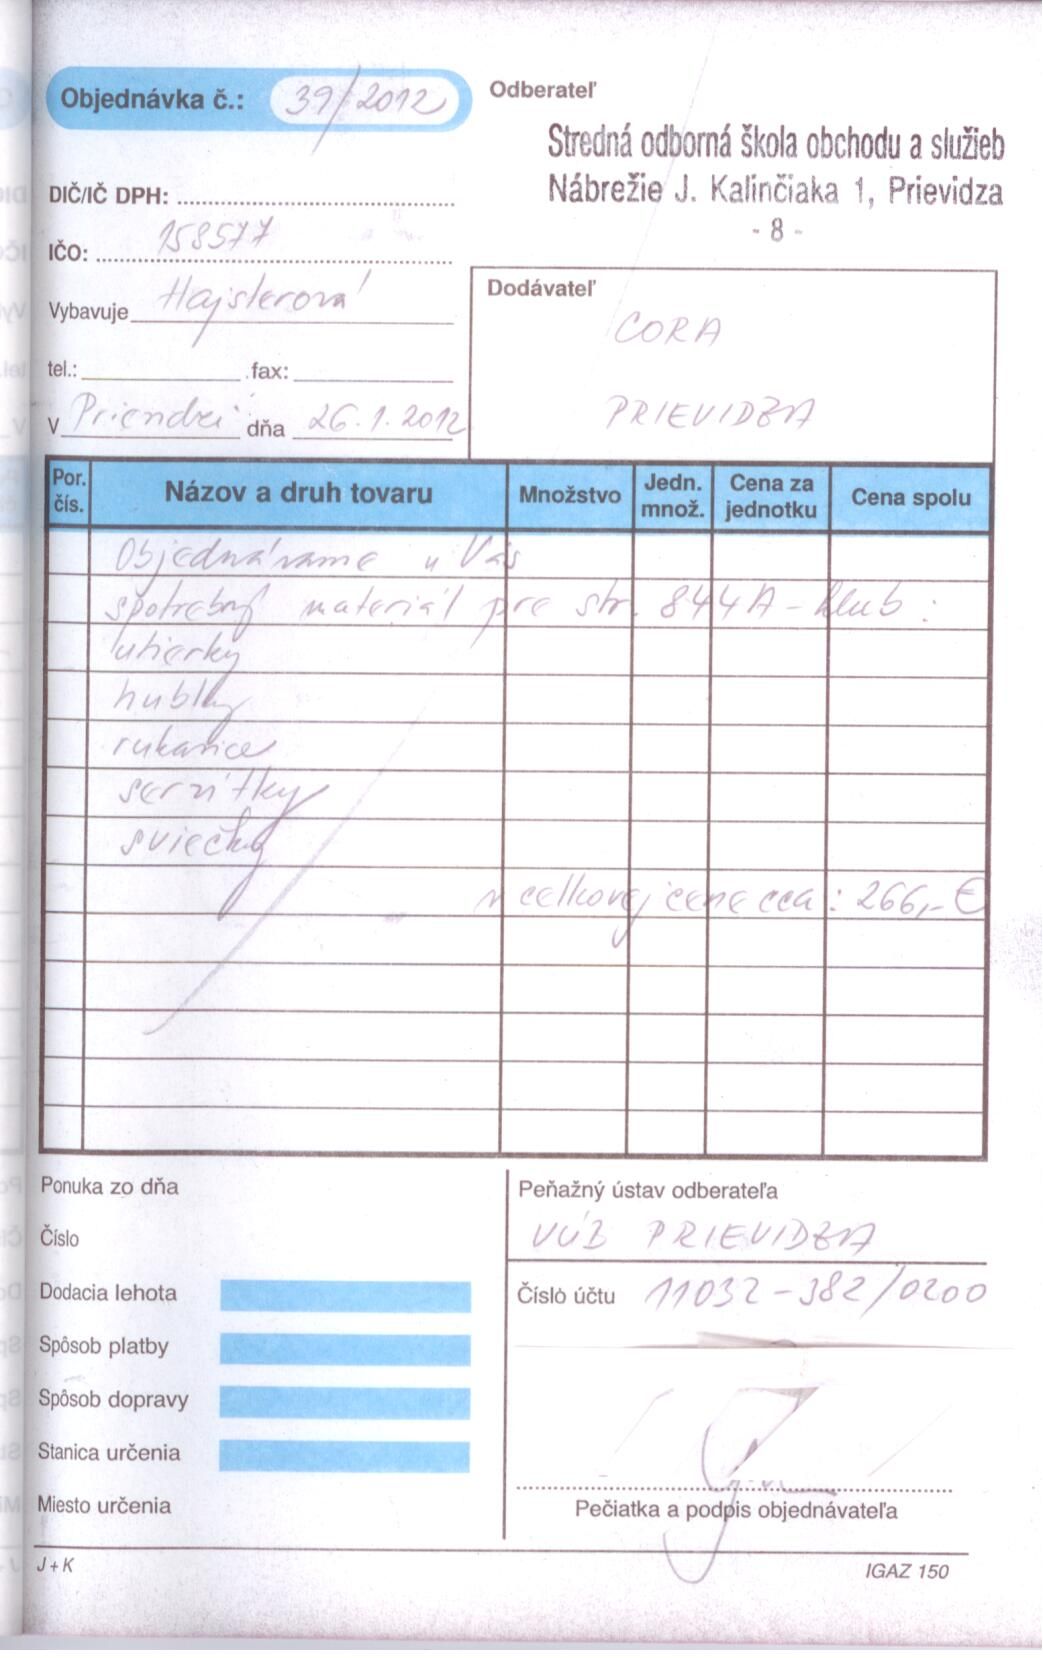 Objednávka č.: 39/2012
Odberateľ
Stredná odborná škola obchodu a služieb
Nábrežie J. Kalinčiaka 1, Prievidza
- 8 -
DIČ/IČ DPH:
IČO: 158577
Vybavuje Hajsterová
tel.: fax:
V Prievidzi dňa 26.1.2012
Dodávateľ
CORA
PRIEVIDZA
Por. čís. Názov a druh tovaru Množstvo Jedn. množ. Cena za jednotku Cena spolu
Objednávame u Vás
spotrebný materiál pre str. 844A - klub :
utierky
hubky
rukavice
servítky
sviečky
v celkovej cene cca : 266,- €
Ponuka zo dňa
Číslo
Dodacia lehota
Spôsob platby
Spôsob dopravy
Stanica určenia
Miesto určenia
Peňažný ústav odberateľa
VÚB PRIEVIDZA
Číslo účtu 11032-382/0200
Pečiatka a podpis objednávateľa
J + K
IGAZ 150